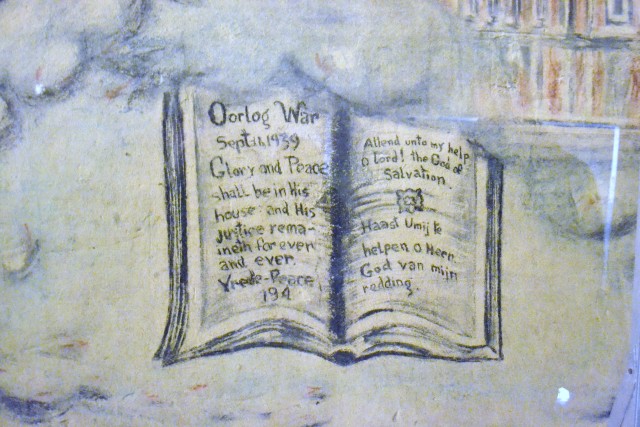 Oorlog War
Sept 1, 1939
Glory and Peace
shall be in His
house and His
justice rema-
ineth for ever
and ever.
Vrede-Peace
194
Attend unto my help
O Lord! the God of
Salvation.
Haast U mij te
helpen O Heer
God van mijn
redding.